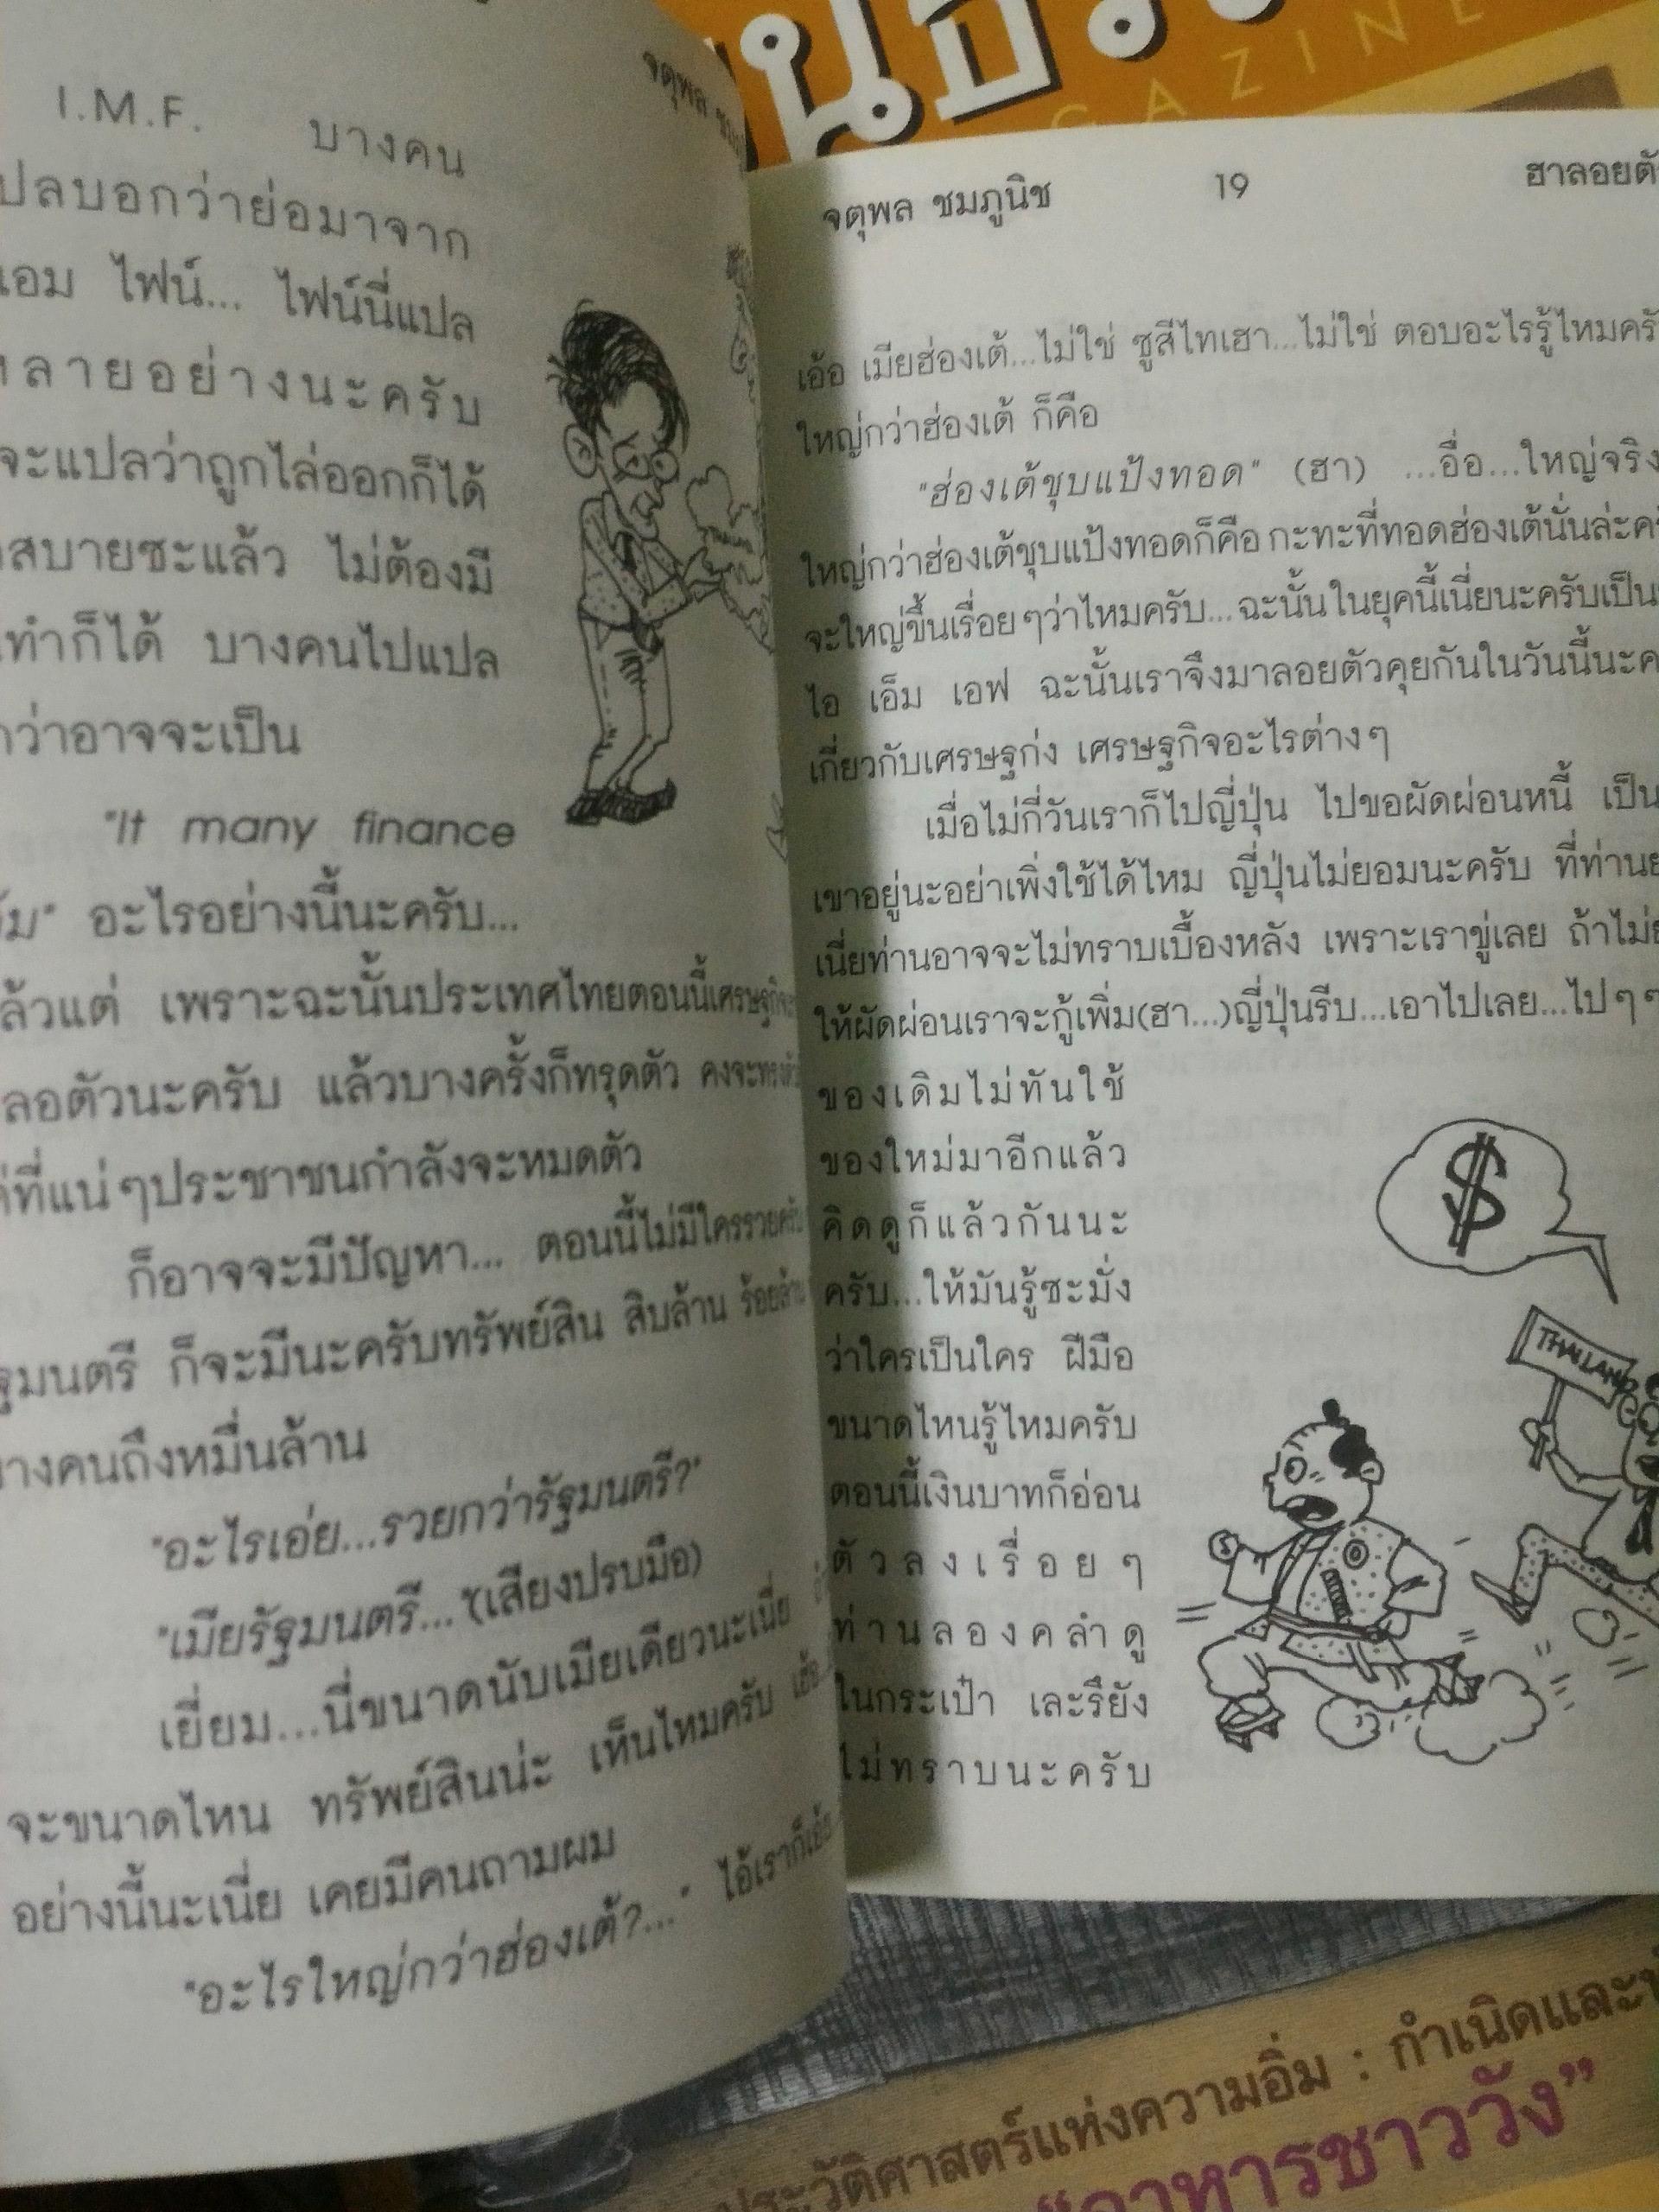 MAGAZINE
จตุพล
I.M.F. บางคน
แปลบอกว่าย่อมาจาก
แอม ไฟน์... ไฟน์นี่แปล
หลายอย่างนะครับ
จะแปลว่าถูกไล่ออกก็ได้
สบายซะแล้ว ไม่ต้องมี
ทำก็ได้ บางคนไปแปล
ว่าอาจจะเป็น
"It many finance
อะไรอย่างนี้นะครับ...
แล้วแต่ เพราะฉะนั้นประเทศไทยตอนนี้เศรษฐกิจ
ชะลอตัวนะครับ แล้วบางครั้งก็ทรุดตัว คงจะ
ที่แน่ๆประชาชนกำลังจะหมดตัว
ก็อาจจะมีปัญหา... ตอนนี้ไม่มีใครรวยครับ
รัฐมนตรี ก็จะมีนะครับทรัพย์สิน สิบล้าน ร้อยล้าน
บางคนถึงหมื่นล้าน
"อะไรเอ่ย...รวยกว่ารัฐมนตรี?"
"เมียรัฐมนตรี..."(เสียงปรบมือ)
เยี่ยม...นี่ขนาดนับเมียเดียวนะเนี่ย
จะขนาดไหน ทรัพย์สินน่ะ เห็นไหมครับ
อย่างนี้นะเนี่ย เคยมีคนถามผม
"อะไรใหญ่กว่าฮ่องเต้?..." ไอ้เราก็
จตุพล ชมภูนิช 19 ฮาลอยตัว
เอ้อ เมียฮ่องเต้...ไม่ใช่ ซูสีไทเฮา...ไม่ใช่ ตอบอะไรรู้ไหมครับ
ใหญ่กว่าฮ่องเต้ ก็คือ
"ฮ่องเต้ชุบแป้งทอด" (ฮา) ...อื่อ...ใหญ่จริง
ใหญ่กว่าฮ่องเต้ชุบแป้งทอดก็คือ กะทะที่ทอดฮ่องเต้นั่นล่ะครับ
จะใหญ่ขึ้นเรื่อยๆว่าไหมครับ...ฉะนั้นในยุคนี้เนี่ยนะครับเป็น
ไอ เอ็ม เอฟ ฉะนั้นเราจึงมาลอยตัวคุยกันในวันนี้นะครับ
เกี่ยวกับเศรษฐก่ง เศรษฐกิจอะไรต่างๆ
เมื่อไม่กี่วันเราก็ไปญี่ปุ่น ไปขอผัดผ่อนหนี้ เป็น
เขาอยู่นะอย่าเพิ่งใช้ได้ไหม ญี่ปุ่นไม่ยอมนะครับ ที่ท่าน
เนี่ยท่านอาจจะไม่ทราบเบื้องหลัง เพราะเราขู่เลย ถ้าไม่
ให้ผัดผ่อนเราจะกู้เพิ่ม(ฮา...)ญี่ปุ่นรีบ...เอาไปเลย...ไปๆๆ
ของเดิมไม่ทันใช้
ของใหม่มาอีกแล้ว
คิดดูก็แล้วกันนะ
ครับ...ให้มันรู้ซะมั่ง
ว่าใครเป็นใคร ฝีมือ
ขนาดไหนรู้ไหมครับ
ตอนนี้เงินบาทก็อ่อน
ตัวลงเรื่อยๆ
ท่านลองคลำดู
ในกระเป๋า เละรึยัง
ไม่ทราบนะครับ
$
THAILAND
ประวัติศาสตร์แห่งความอิ่ม : กำเนิดและ
"อาหารชาววัง"